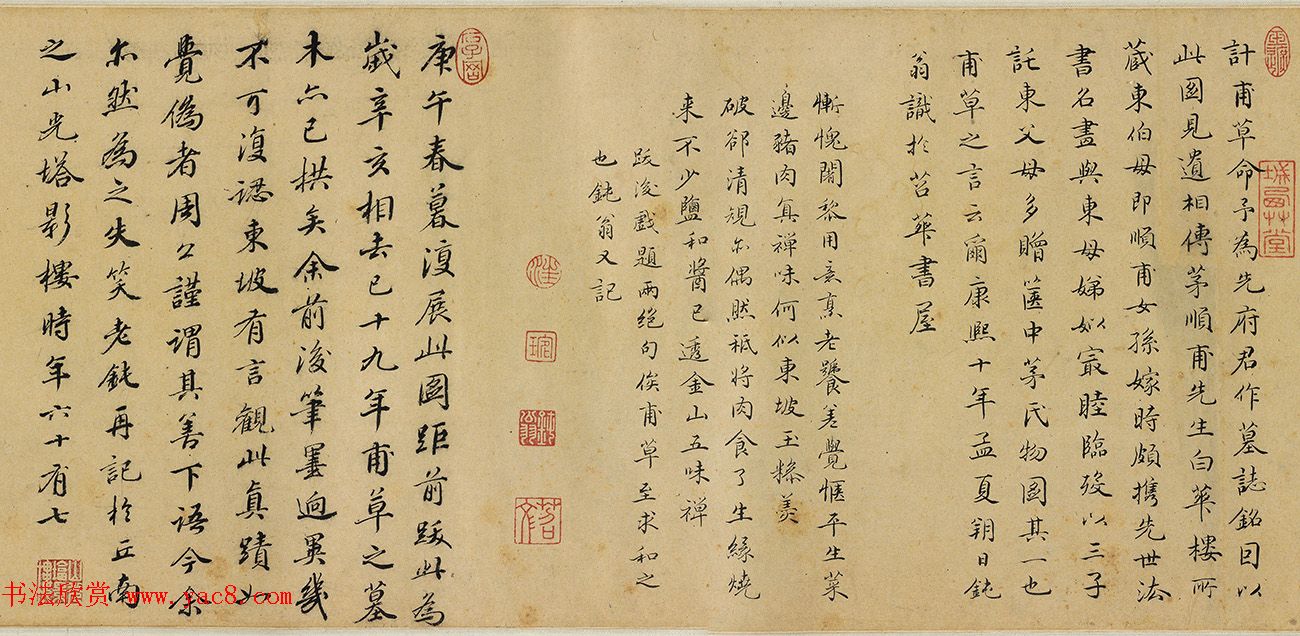 計甫草命予為先府君作墓誌銘因以
此圖見遺相傳茅順甫先生白華樓所
蔵東伯母即順甫女孫嫁時頗攜先世法
書名畫與東母娣姒宼睦臨殁以三子
託東父母多贈篋中茅氏物圖其一也
甫草之言云爾康熙十年孟夏朔日鈍
翁識於苕華書屋
慚愧闍黎用意烹老饕羞覺愜平生菜
邊豬肉真禪味何似東坡玉糝羹
破郤清規亦偶然祗將肉食了生緣燒
来不少鹽和醬已透金山五味禪
跋後戲題兩絕句俟甫草至求和之
也鈍翁又記
庚午春暮復展此圖距前跋此為
嵗辛亥相去已十九年甫草之墓
木亦已拱矣余前後筆墨逈異幾
不可復認東坡有言觀此真蹟如
覺偽者周公謹謂其善下语今余
亦然為之失笑老鈍再記於丘南
之山光塔影樓時年六十有七
书法欣赏 www.yac8.com